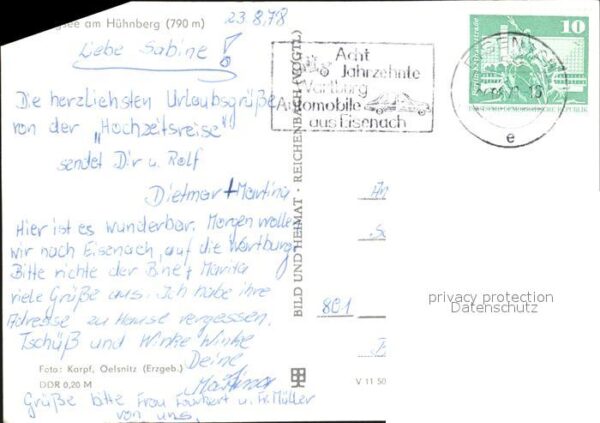 gsee am Hühnberg (790 m)
23 8.78
Liebe Sabine!
Die herzliehsten Urlaubsgrüße
von der "Hochzeitsreise"
sendet Dir u. Ralf
Dietmar + Martina
Hier ist es wunderbar. Morgen wolle
wir nach Eisenach, auf die Wartburg
Bitte richte der Bine + Marita
viele Grüße aus. Ich habe ihre
Adresse zu Hause vergessen.
Tschüß und Winke Winke
Deine
Martina
Foto: Karpf, Oelsnitz (Erzgeb.)
DDR 0,20 M
Grüße bitte Frau u. Fr. Müller
von uns.
BILD UND HEIMAT · REICHENBACH (VOGTL)
V 11 50
Acht
Jahrzehnte
Wartburg
Automobile
aus Eisenach
10
e
801
privacy protection
Datenschutz